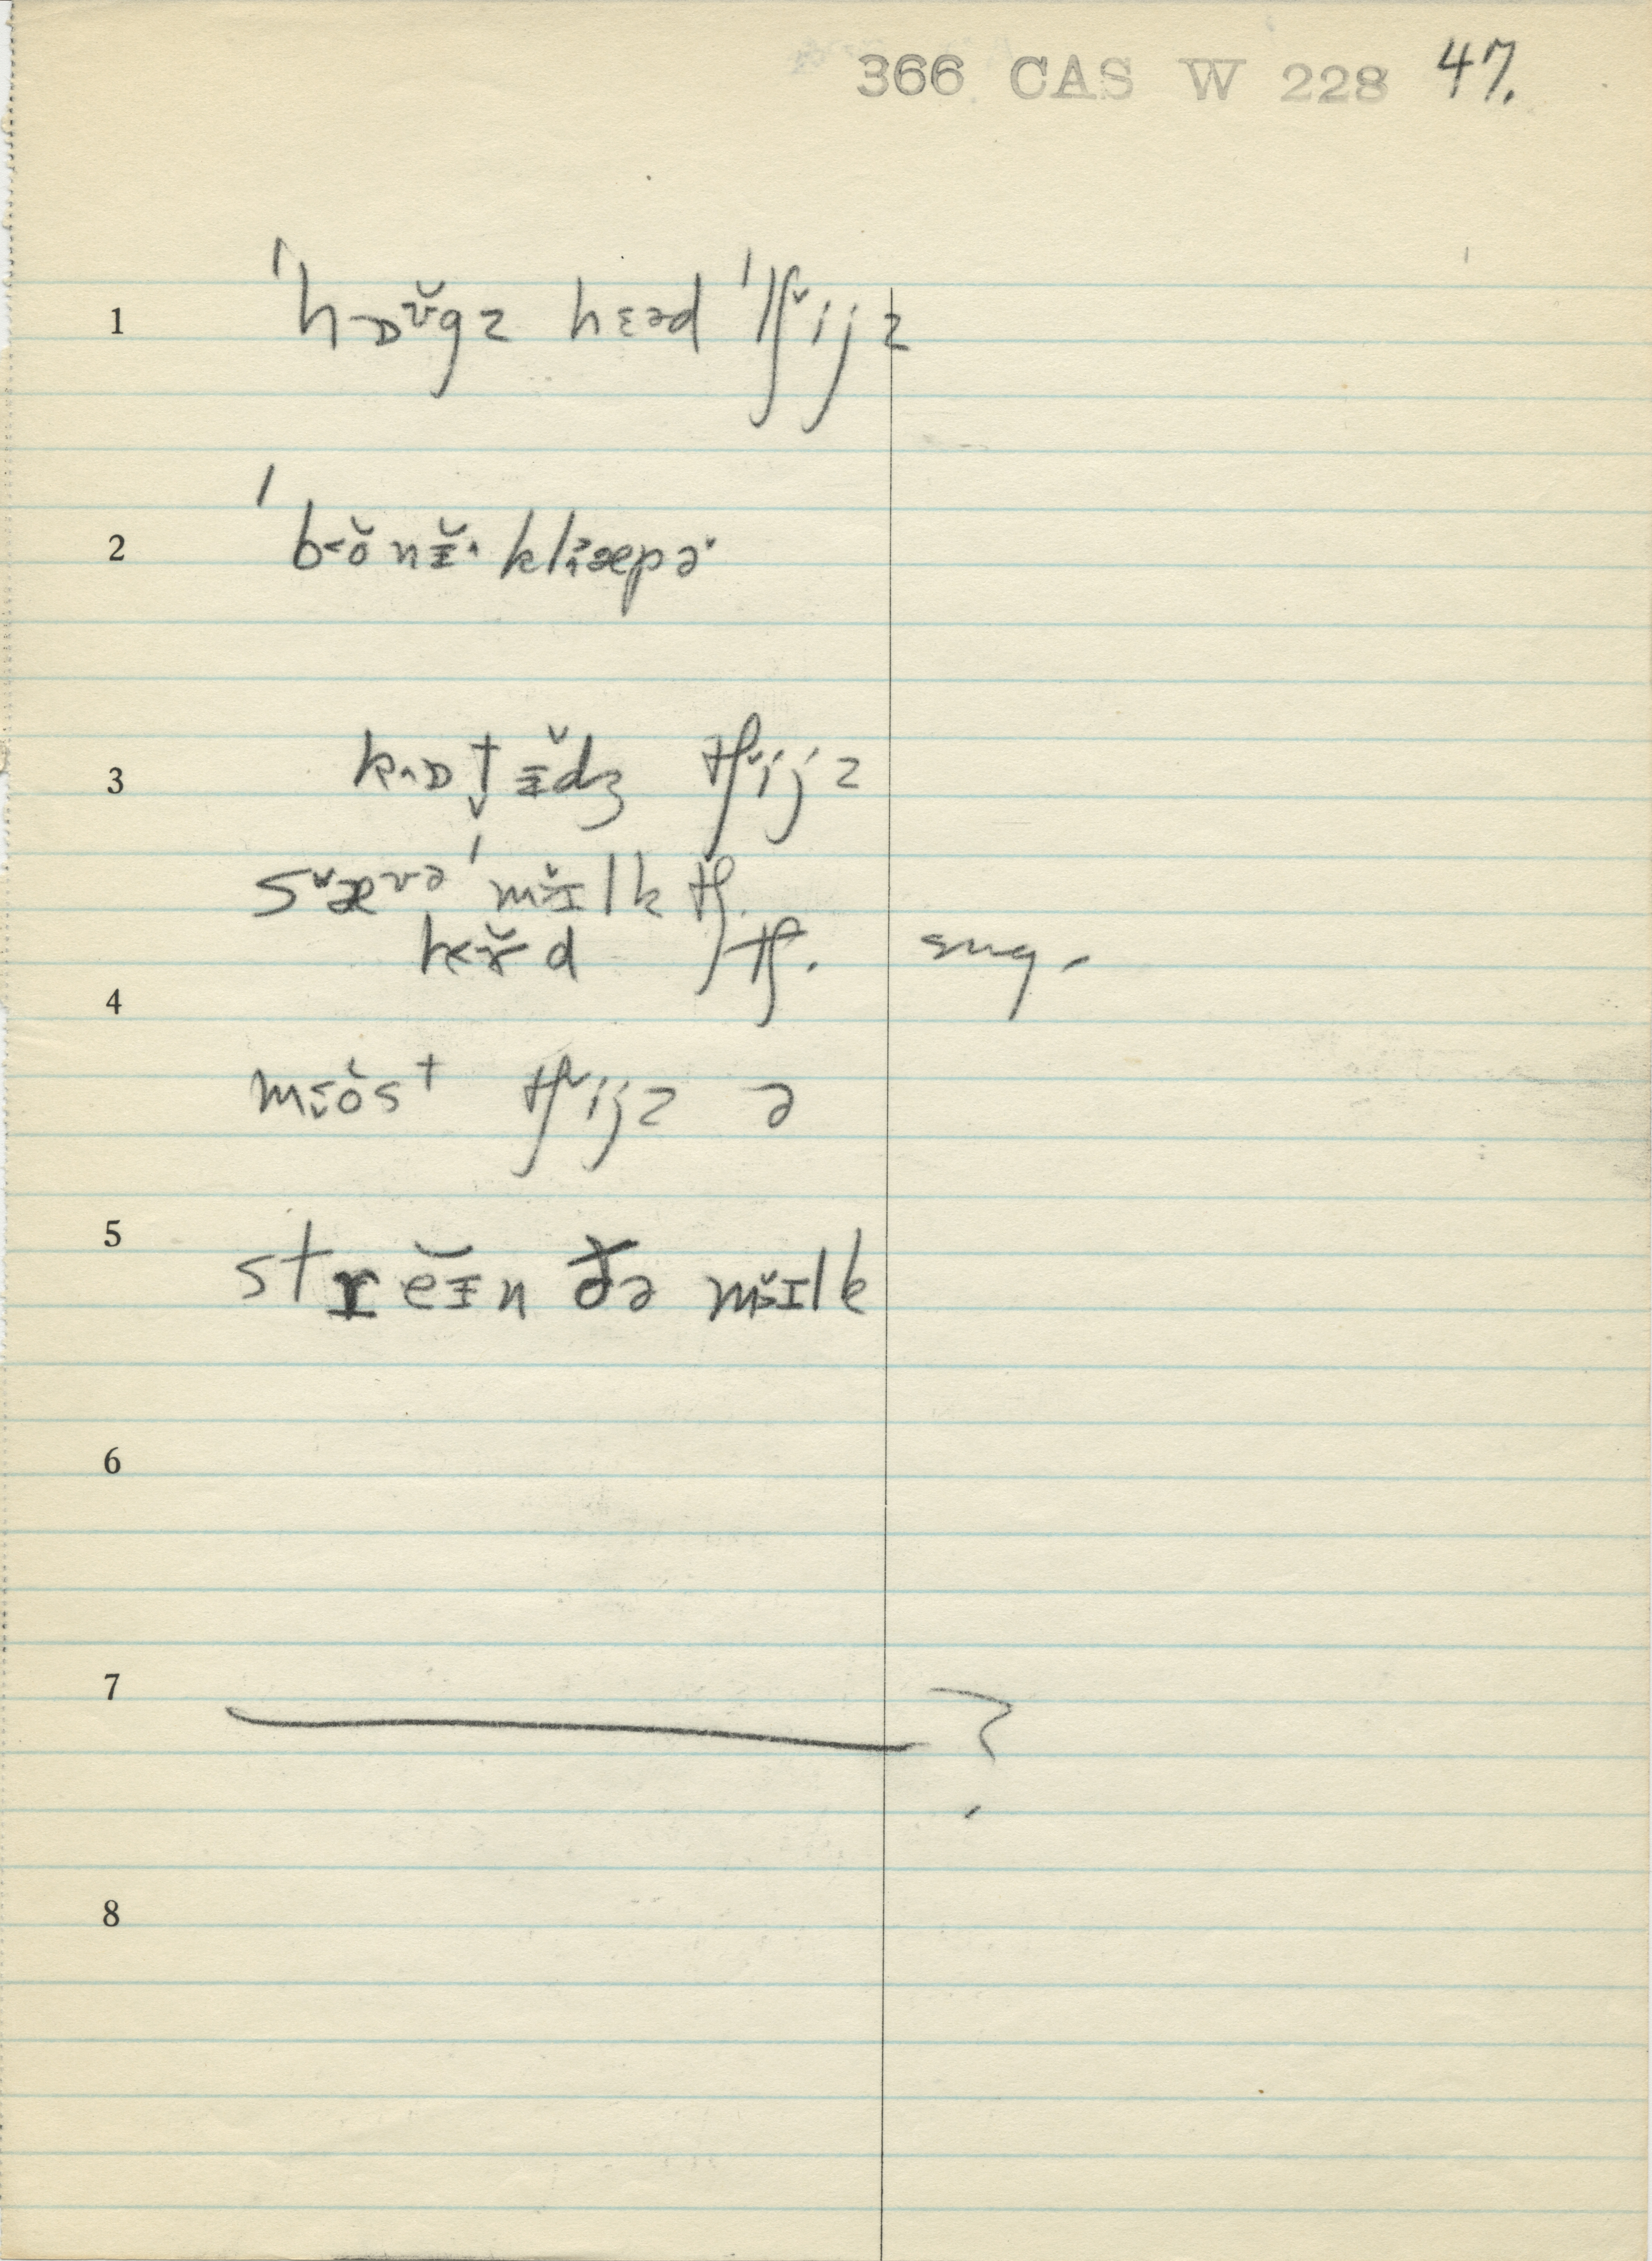 366 CAS W 228 47.
1 ˈhɒʊ̆gz hɛəd ˈtʃˇijz
2 ˈb˂ŏnɪ̵̆˄ klæpə˞
3 k˄ɒt̬ɪ̵̆dʒ tʃˇijz
sˇæʊə ˈmɪ̆lk tʃ.
kɤ̆d tʃ. sug.
4
mŏst tʃˇijz ə
5 streɪ̵̆n ðə mɪ̆lk
6
7 ?
8